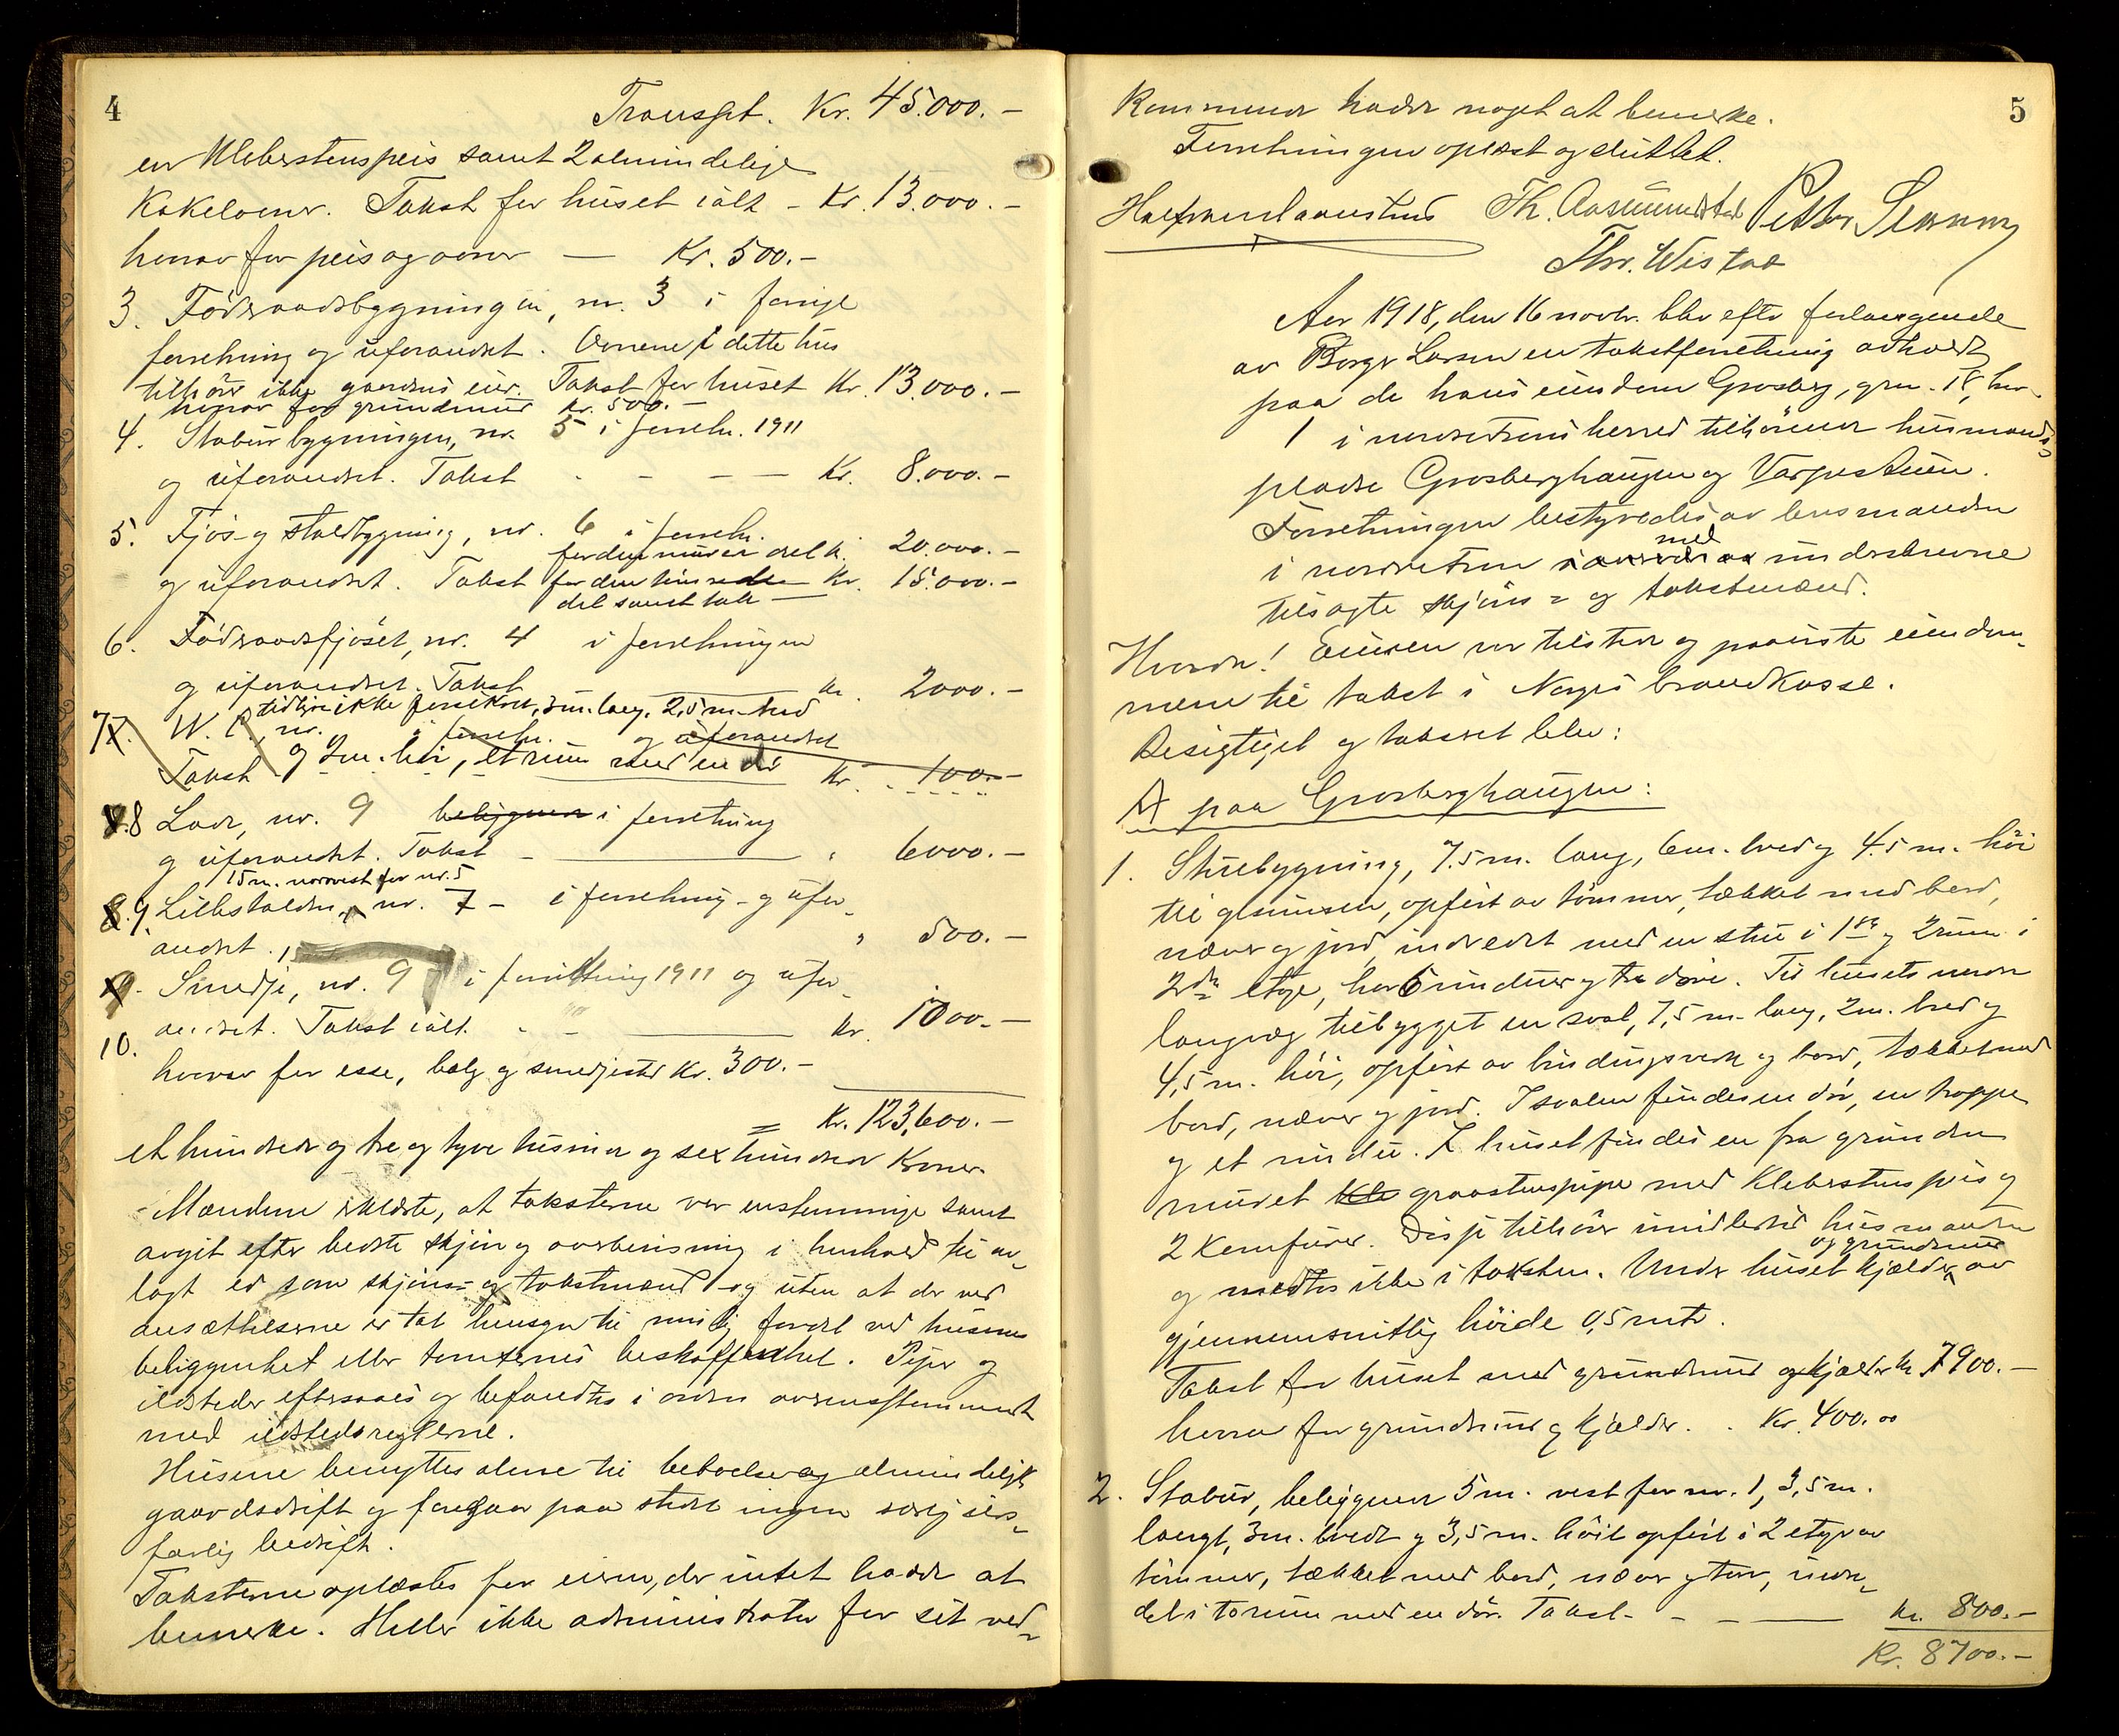 4
Transpt. Kr. 45.000.-
en Klebestenspeis samt 2 almindelige
Kakelovner. Takst for huset ialt - Kr. 13.000.-
herav for peis og ovner — Kr. 500.-
3. Föderaadsbygningen, nr. 3 i forrige
forretning og uforandret. Ovnene i dette hus
tilhörer ikke gaardens eier. Takst for huset Kr. 13.000.-
herav for grundmur Kr. 500.-
4. Stabursbygningen, nr. 5 i forretn. 1911
og uforandret. Takst - - - — Kr. 8.000.-
5. Fjös- og staldbygning, nr. 6 i forretn.
for den murede del k. 20.000.-
og uforandret. Takst for den tömrede Kr. 15.000.-
del samt tak —
6. Föderaadsfjöset, nr. 4 i forretningen
og uforandret. Takst kr. 2000.-
tidligere ikke forsikret, 3 m. lang, 2,5 m. bred
7. W. C., nr. i forretn. og uforandret
Takst og 2 m. höi, et rum med en dör Kr. 100.-
8 Lade, nr. 9 beliggende i forretning
og uforandret. Takst - — " 6000.-
15 m. norvest for nr. 5
9. Lillestalden, nr. 7 - i forretning - og ufor-
andret. " 500.-
9. Smedje, nr. 9 i forretning 1911 og ufor-
10. andret. Takst ialt. - - — Kr. 1000.-
hvorav for esse, belg og smedjested Kr. 300.-
= Kr. 123,600.-
et hundrede og tre og tyve tusinde og sex hundrede Kroner.
Mændene erklærte, at taksterne var enstemmige samt
avgit efter bedste skjön og overbevisning i henhold til av-
lagt ed som skjöns- og takstmænd - og uten at der ved
ansættelserne er tat hensyn til mulig fordel ved husenes
beliggenhet eller tomternes beskaffenhet. Piper og
ildsteder eftersaaes og befandtes i orden overensstemmende
med ildstedsreglerne.
Husene benyttes alene til beboelse og almindelig
gaardsdrift og foregaar paa stedet ingen særlig ild-
farlig bedrift.
Taksterne oplæstes for eieren, der intet hadde at
bemerke. Heller ikke administrator for sit ved-
5
Kommende hadde noget at bemerke.
Forretningen oplæst og sluttet.
Th. Aasmundstad Petter
Thr. Wistad
Aar 1918, den 16 novbr. blev efter forlangende
av Borger Larsen en takstforretning avholdt
paa de hans eiendom Grosberg, grn. 18, brn.
1 i nordre Frons herred tilhörende husmands-
pladse Grosberghaugen og Varpestuen.
Forretningen bestyredes av lensmanden
i nordre Fron med undertegnede
tilsagte skjöns- og takstmænd.
Hvorda! Eieren var tilstede og paaviste eiendom-
mene til takst i Norges brandkasse.
Besigtiget og takseret blev:
A paa Grosberghaugen:
1. Stuebygning, 7.5 m. lang, 6 m. bred og 4.5 m. höi
til gesimsen, opfört av tömmer, tækket med bord,
næver og jord, indredet med en stue i 1ste og 2 rum i
2den etage, har 6 vinduer og tre döre. Til husets nordre
langvæg tilbygget en sval, 7,5 m. lang, 2 m. bred og
4,5 m. höi, opfört av bindingsverk og bord, tækket med
bord, næver og jord. I svalen findes en dör, en trappe
og et vindu. I huset findes en fra grunden
muret graastenspipe med Klebestens peis og
2 Komfurer. Disse tilhörer imidlertid husmanden
og medtas ikke i taksten. Under huset kjælder og grundmur av
gjennemsnitlig höide 0,5 mtr.
Takst for huset med grundmur og kjælder kr. 7900.-
herav for grundmur og kjælder. . Kr. 400.00
2. Stabur, beliggende 5 m. vest for nr. 1, 3,5 m.
langt, 3 m. bredt og 3,5 m. höit opfört i 2 etager av
tömmer, tækket med bord, næver og torv, inde-
delt i to rum med en dör. Takst - - - — Kr. 800.-
Kr. 8700.-